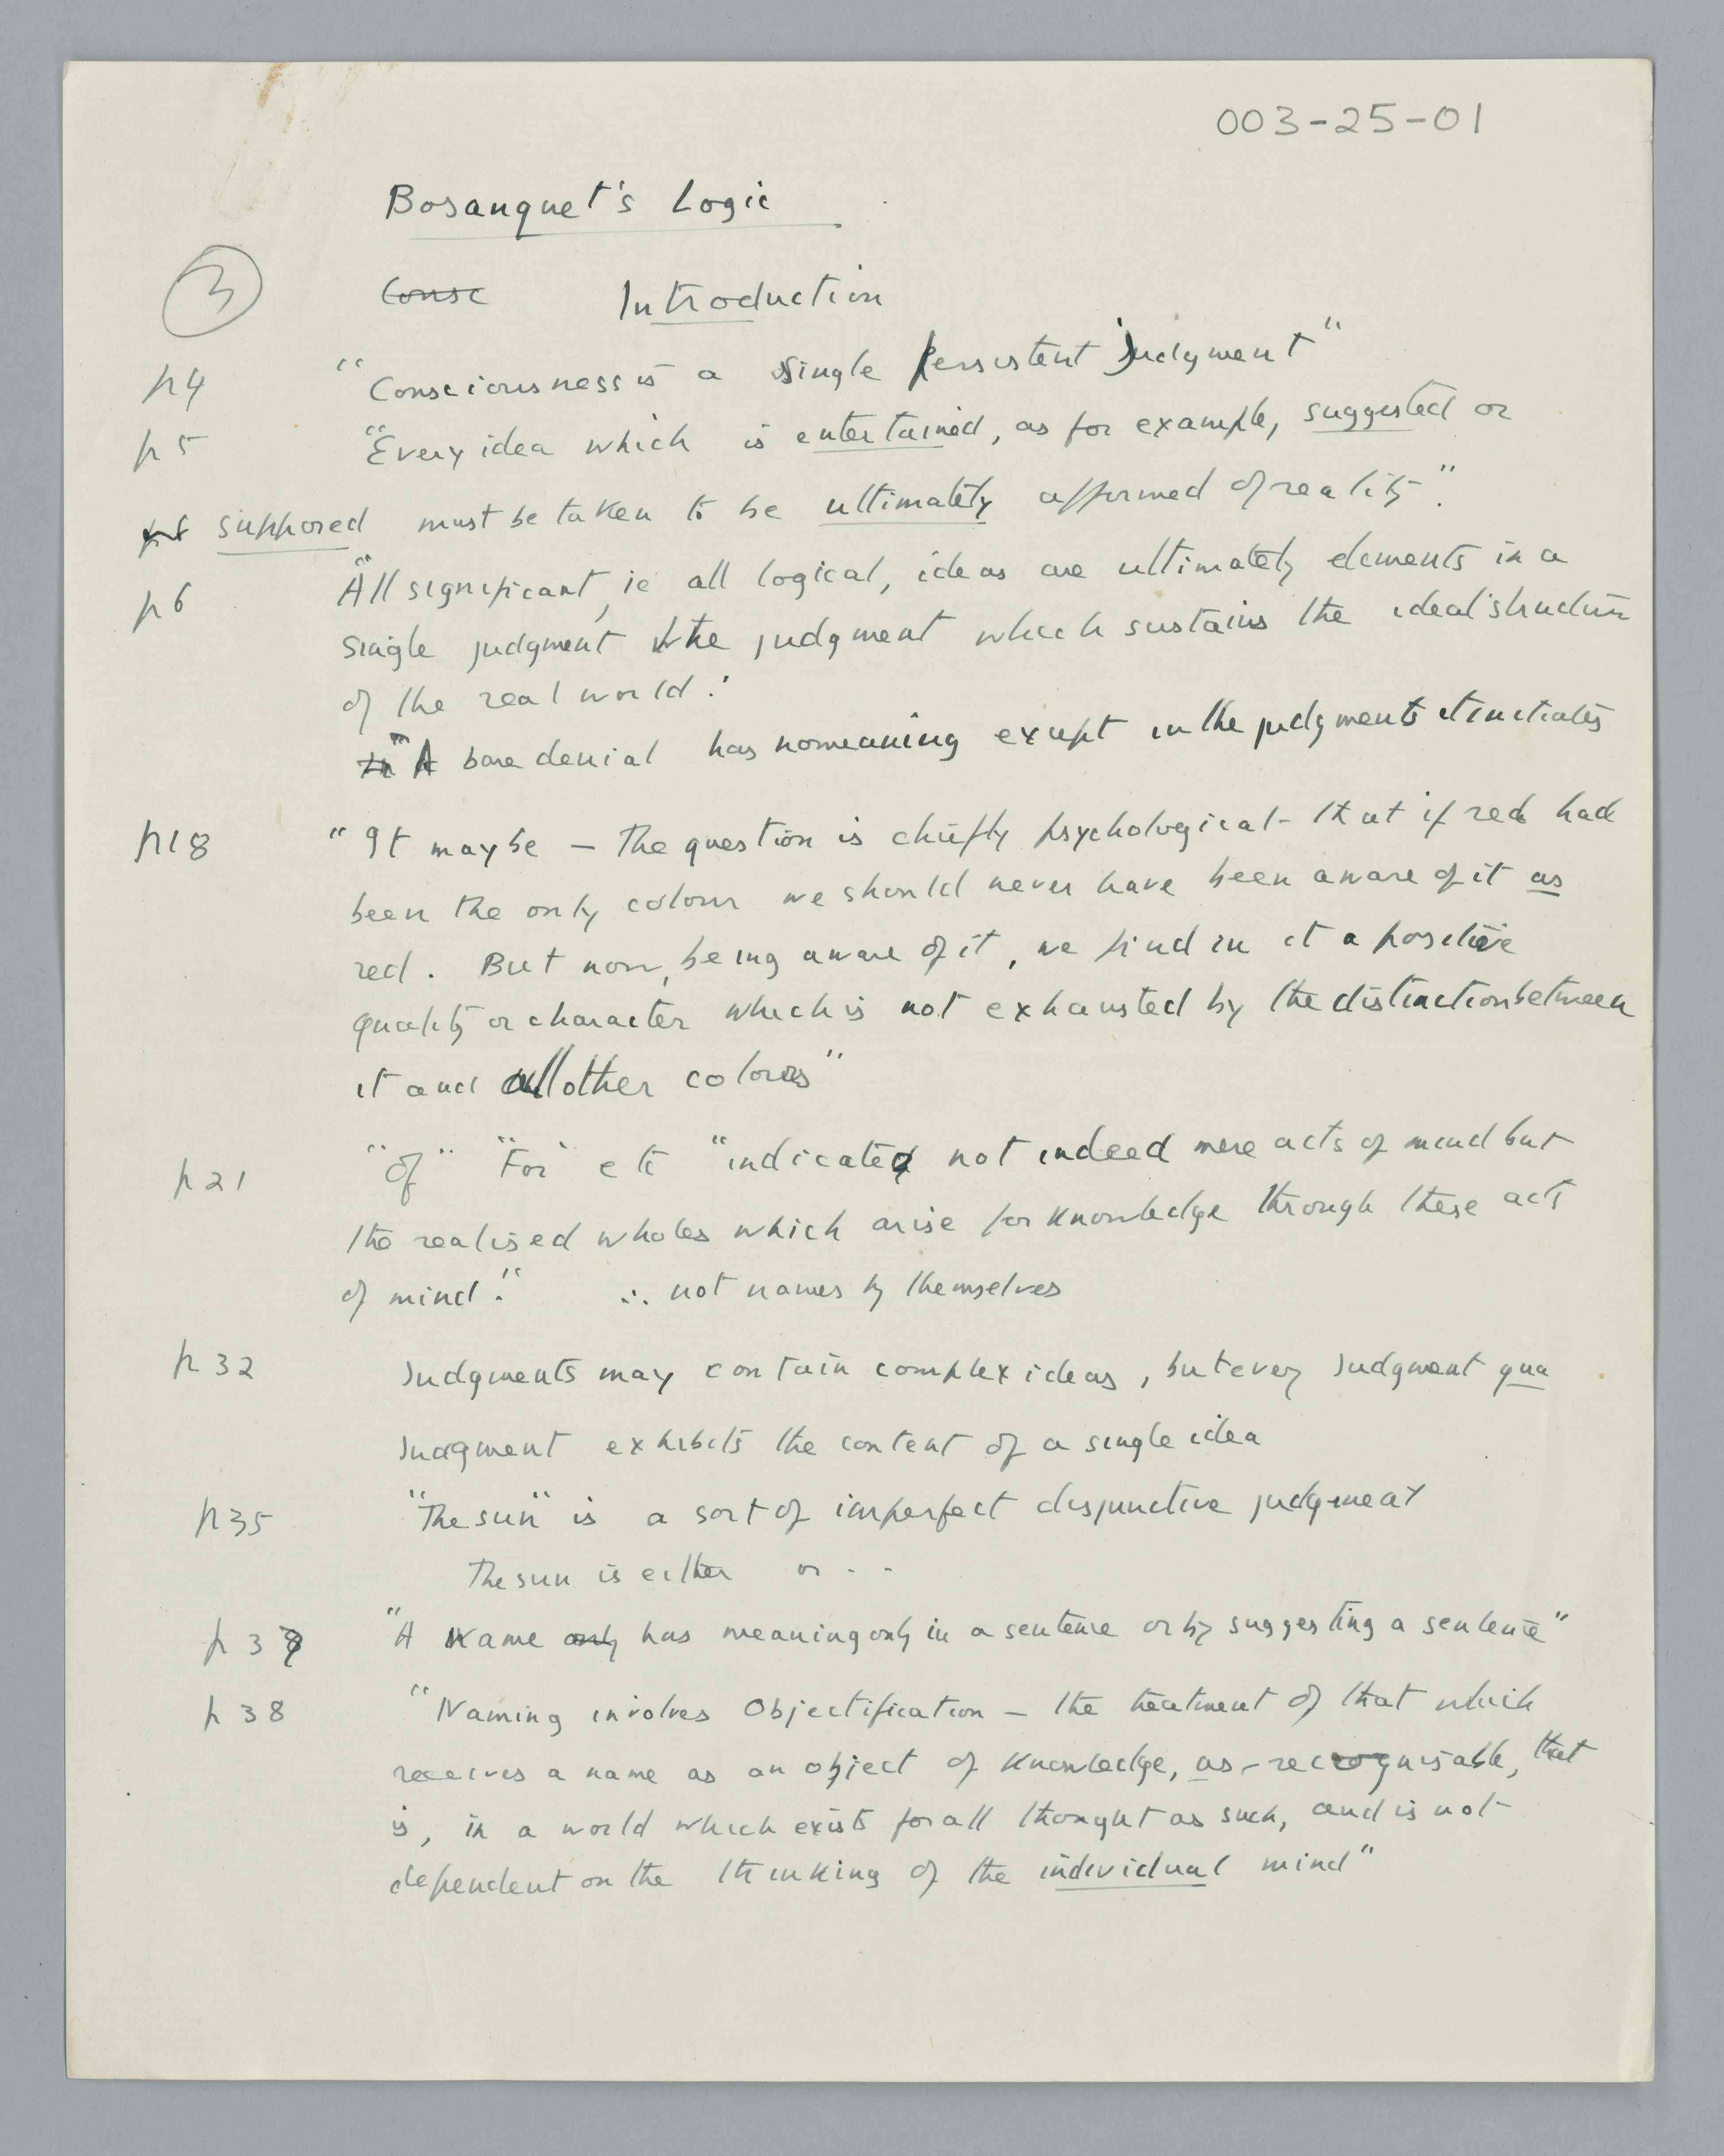 003-25-01
Bosanquet's Logic
③
Consc Introduction
p4 "Consciousness is a single persistent judgment"
p5 "Every idea which is entertained, as for example, suggested or
supposed must be taken to be ultimately affirmed of reality".
p6 "All significant, ie all logical, ideas are ultimately elements in a
single judgment the judgment which sustains the ideal structure
of the real world."
"A bare denial has no meaning except in the judgments it initiates
p18 "It may be – the question is chiefly psychological – that if red had
been the only colour we should never have been aware of it as
red. But now, being aware of it, we find in it a positive
quality or character which is not exhausted by the distinction between
it and all other colours"
p21 "of" "For" etc "indicate not indeed mere acts of mind but
the realised wholes which arise for knowledge through these acts
of mind." ∴ not names by themselves
p32 Judgments may contain complex ideas, but every Judgment qua
Judgment exhibits the content of a single idea
p35 "The sun" is a sort of imperfect disjunctive judgment
The sun is either or - -
p37 "A Name only has meaning only in a sentence or by suggesting a sentence"
p38 "Naming involves Objectification – the treatment of that which
receives a name as an object of knowledge, as recognisable, that
is, in a world which exists for all thought as such, and is not
dependent on the thinking of the individual mind"